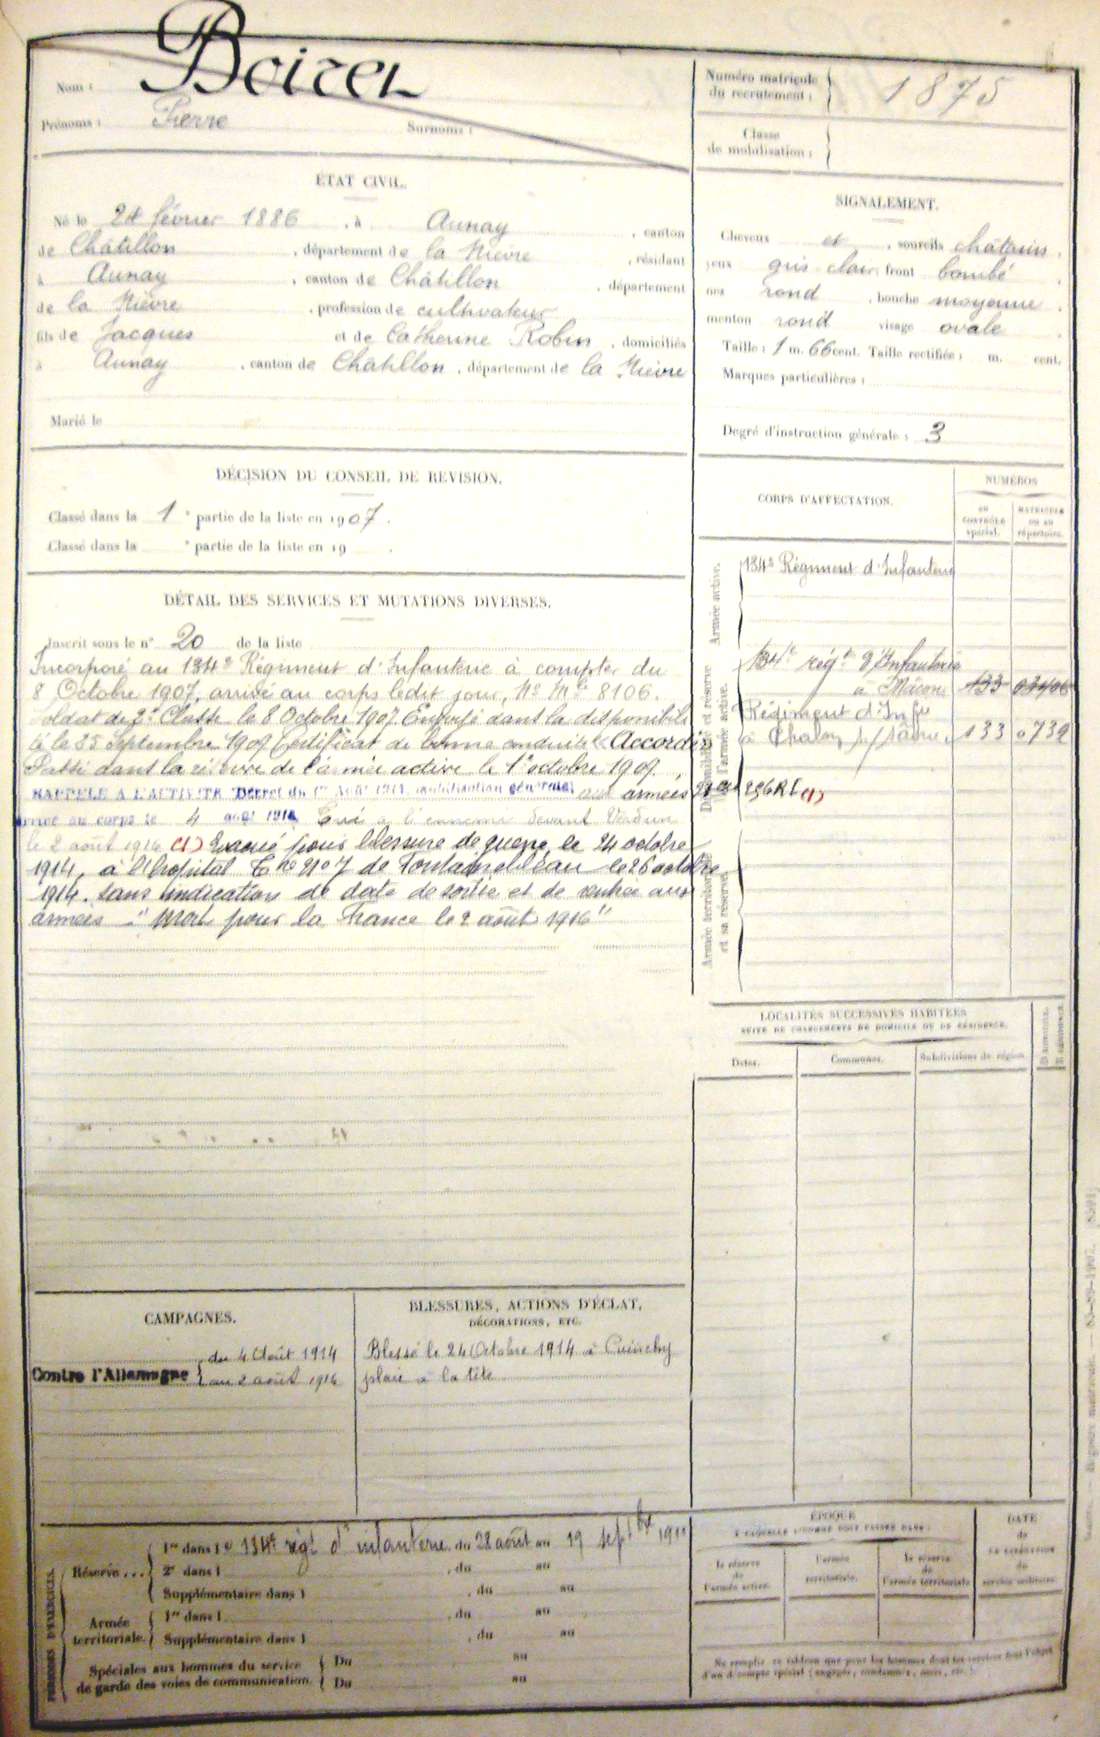 Nom : Boirel
Prénoms : Pierre Surnoms :
Numéro matricule du recrutement : 1875
Classe de mobilisation :
ÉTAT CIVIL.
Né le 24 février 1886, à Aunay, canton
de Châtillon, département de la Nièvre, résidant
à Aunay, canton de Châtillon, département
de la Nièvre, profession de cultivateur
fils de Jacques et de Catherine Robin, domiciliés
à Aunay, canton de Châtillon, département de la Nièvre
Marié le
SIGNALEMENT.
Cheveux et, sourcils châtains,
yeux gris clair, front bombé,
nez rond, bouche moyenne,
menton rond visage ovale
Taille : 1 m. 66 cent. Taille rectifiée : m. cent.
Marques particulières :
Degré d'instruction générale : 3
DÉCISION DU CONSEIL DE REVISION.
Classé dans la 1e partie de la liste en 1907.
Classé dans la e partie de la liste en 19
DÉTAIL DES SERVICES ET MUTATIONS DIVERSES.
Inscrit sous le n° 20 de la liste
Incorporé au 134e Régiment d'Infanterie à compter du
8 Octobre 1907, arrivé au corps ledit jour, No Mle 8106.
Soldat de 2e Classe le 8 Octobre 1907. Envoyé dans la disponibili
té le 25 Septembre 1909 Certificat de bonne conduite "Accordé"
Passé dans la réserve de l'armée active le 1er octobre 1909.
RAPPELÉ A L'ACTIVITÉ Décret du 1er Août 1914 mobilisation générale aux armées
Arrivé au corps le 4 août 1914 Tué à l'ennemi devant Verdun
le 2 août 1916 (1) Evacué pour blessure de guerre le 24 octobre
1914, à l'hôpital de Fontainebleau le 26 octobre
1914. sans indication de date de sortie et de rentrée aux
armées - "Mort pour la France le 2 août 1916"
CORPS D'AFFECTATION.
NUMÉROS
AU CONTRÔLE spécial.
MATRICULE OU AU répertoire.
Armée active.
134e Régiment d'Infanterie
Disponibilité et réserve de l'armée active.
134e régt d'Infanterie
à Mâcon 133
Régiment d'Infie
à Chalon s/Saône 133 0739
256 RI (1)
Armée territoriale et sa réserve.
LOCALITÉS SUCCESSIVES HABITÉES
SUITE DE CHANGEMENTS DE DOMICILE OU DE RÉSIDENCE.
Dates. Communes. Subdivisions de région.
CAMPAGNES.
Contre l'Allemagne du 4 Août 1914
au 2 août 1916
BLESSURES, ACTIONS D'ÉCLAT,
DÉCORATIONS, ETC.
Blessé le 24 Octobre 1914 à
plaie à la tête
PÉRIODES D'EXERCICES.
Réserve... 1re dans le 134e régt d'infanterie du 28 août au 19 septbre
2e dans l , du au
Supplémentaire dans l , du au
Armée territoriale. 1re dans l , du au
Supplémentaire dans l , du au
Spéciales aux hommes du service Du au
de garde des voies de communication. Du au
ÉPOQUE
À LAQUELLE L'HOMME DOIT PASSER DANS :
la réserve de l'armée active. l'armée territoriale. la réserve de l'armée territoriale
DATE de LA LIBÉRATION du service militaire.
Ne remplir ce tableau que pour les hommes dont les services font l'objet
d'un décompte spécial (engagés, condamnés, omis, etc.).